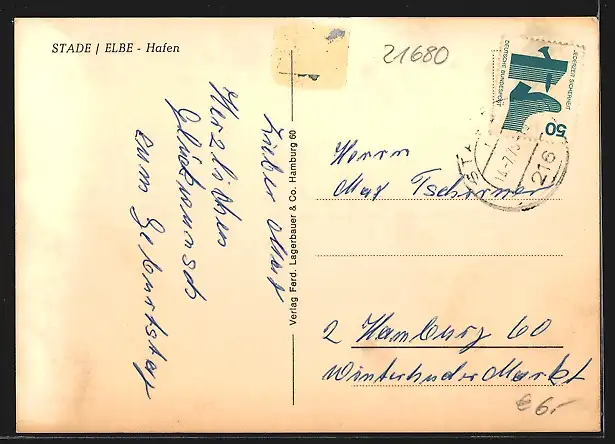 STADE / ELBE - Hafen
21680
Lieber Max
Herzlichen
Glückwunsch
zum Geburtstag
Verlag Ferd. Lagerbauer & Co. Hamburg 60
JEDERZEIT SICHERHEIT
DEUTSCHE BUNDESPOST
50
216
Herrn
Max Tschirner
2 Hamburg 60
Winterhuder Markt
€ 6,-